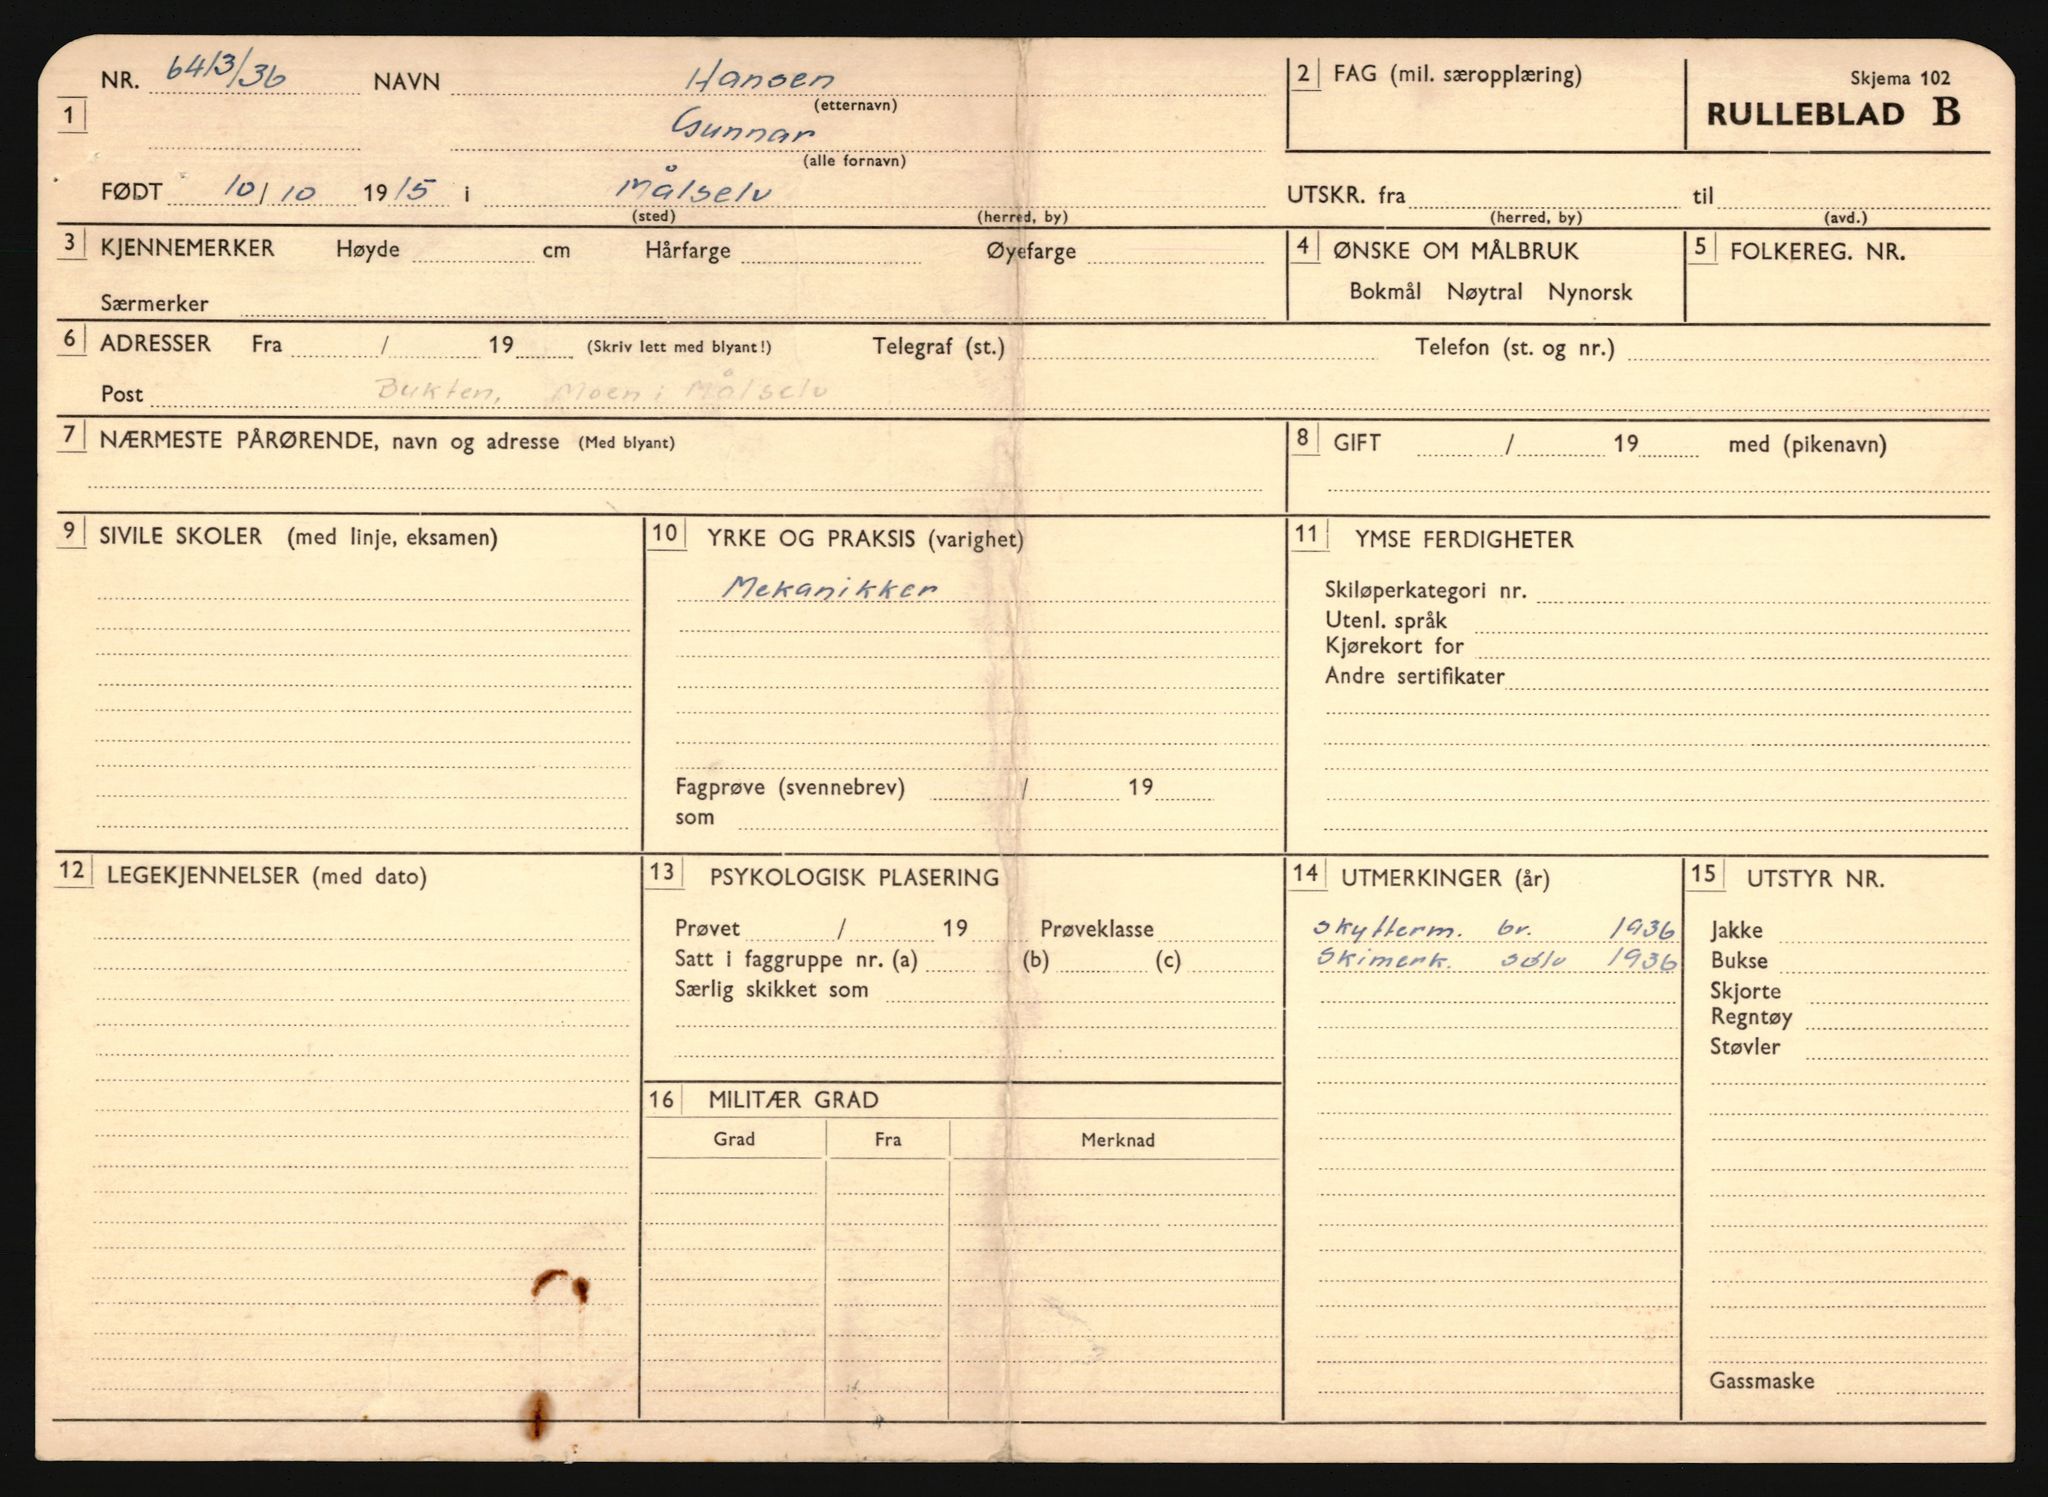 NR. 6413/36 NAVN Hansen
(etternavn)
1 Gunnar
(alle fornavn)
FØDT 10/10 1915 i Målselv
(sted) (herred, by)
2 FAG (mil. særopplæring)
Skjema 102
RULLEBLAD B
UTSKR. fra til
(herred, by) (avd.)
3 KJENNEMERKER Høyde cm Hårfarge Øyefarge
Særmerker
4 ØNSKE OM MÅLBRUK
Bokmål Nøytral Nynorsk
5 FOLKEREG. NR.
6 ADRESSER Fra / 19 (Skriv lett med blyant!) Telegraf (st.) Telefon (st. og nr.)
Post Bukten, Moen i Målselv
7 NÆRMESTE PÅRØRENDE, navn og adresse (Med blyant)
8 GIFT / 19 med (pikenavn)
9 SIVILE SKOLER (med linje, eksamen)
10 YRKE OG PRAKSIS (varighet)
Mekanikker
Fagprøve (svennebrev) / 19
som
11 YMSE FERDIGHETER
Skiløperkategori nr.
Utenl. språk
Kjørekort for
Andre sertifikater
12 LEGEKJENNELSER (med dato)
13 PSYKOLOGISK PLASERING
Prøvet / 19 Prøveklasse
Satt i faggruppe nr. (a) (b) (c)
Særlig skikket som
14 UTMERKINGER (år)
Skytterm. br. 1936
Skimerk. sølv 1936
15 UTSTYR NR.
Jakke
Bukse
Skjorte
Regntøy
Støvler
Gassmaske
16 MILITÆR GRAD
Grad Fra Merknad